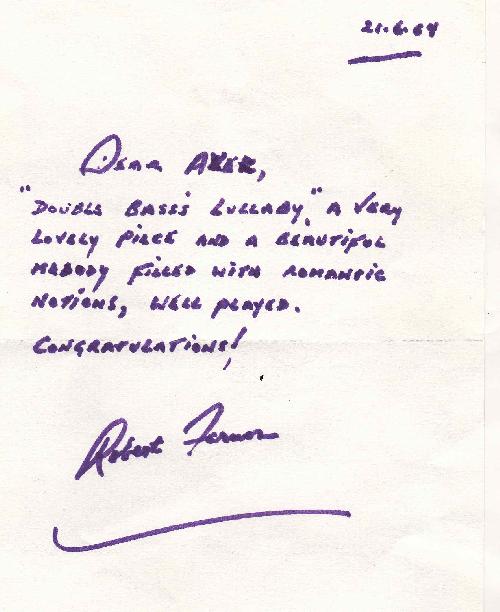 21.6.04
Dear Alex,
"Double Bass's Lullaby", A very
lovely piece and a beautiful
melody filled with romantic
notions, well played.
Congratulations!
Robert Farnon